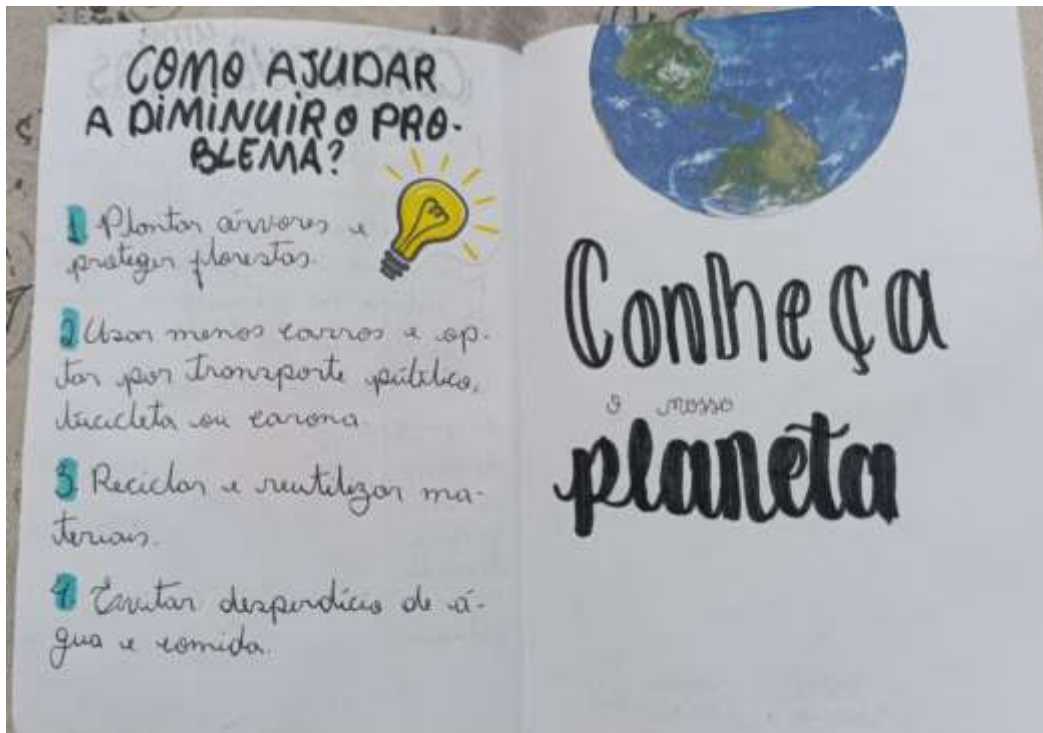 COMO AJUDAR
A DIMINUIR O PRO-
BLEMA?
1 Plantar árvores e
proteger florestas.
2 Usar menos carros e op-
tar por transporte público,
bicicleta ou carona.
3 Reciclar e reutilizar ma-
teriais.
4 Evitar desperdício de á-
gua e comida.
Conheça
o nosso
planeta